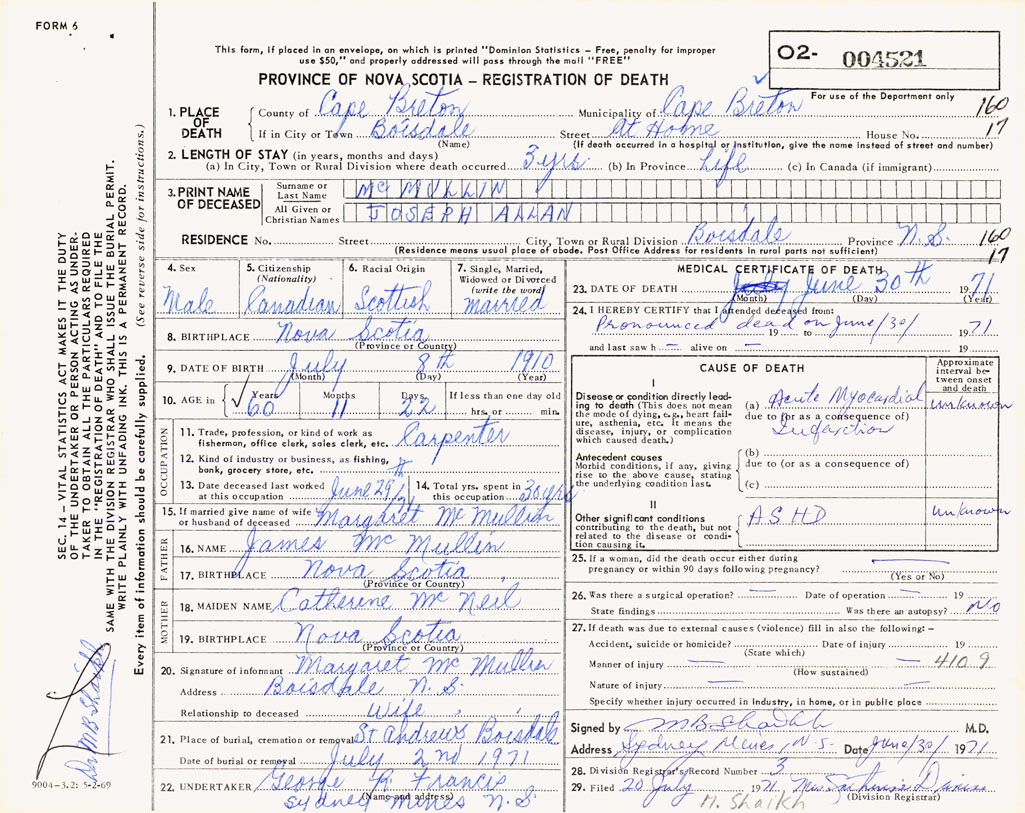 FORM 6
This form, if placed in an envelope, on which is printed "Dominion Statistics – Free, penalty for improper
use $50," and properly addressed will pass through the mail "FREE"
O2- 004521
PROVINCE OF NOVA SCOTIA – REGISTRATION OF DEATH
For use of the Department only
1. PLACE OF DEATH
County of Cape Breton Municipality of Cape Breton 160
If in City or Town Boisdale Street At Home House No. 17
(Name) (If death occurred in a hospital or institution, give the name instead of street and number)
2. LENGTH OF STAY (in years, months and days)
(a) In City, Town or Rural Division where death occurred 3 yrs. (b) In Province Life (c) In Canada (if immigrant)
3. PRINT NAME OF DECEASED
Surname or Last Name McMULLIN
All Given or Christian Names JOSEPH ALLAN
RESIDENCE No. Street City, Town or Rural Division Boisdale Province N.S. 160
(Residence means usual place of abode. Post Office Address for residents in rural parts not sufficient) 17
4. Sex
Male
5. Citizenship
(Nationality)
Canadian
6. Racial Origin
Scottish
7. Single, Married,
Widowed or Divorced
(write the word)
married
8. BIRTHPLACE Nova Scotia
(Province or Country)
9. DATE OF BIRTH July 8th 1910
(Month) (Day) (Year)
10. AGE in Years Months Days If less than one day old
60 11 22 hrs. or min.
OCCUPATION
11. Trade, profession, or kind of work as
fisherman, office clerk, sales clerk, etc. Carpenter
12. Kind of industry or business, as fishing,
bank, grocery store, etc.
13. Date deceased last worked
at this occupation June 29th/71
14. Total yrs. spent in
this occupation 30 yrs
15. If married give name of wife
or husband of deceased Margaret McMullin
FATHER
16. NAME James McMullin
17. BIRTHPLACE Nova Scotia
(Province or Country)
MOTHER
18. MAIDEN NAME Catherine McNeil
19. BIRTHPLACE Nova Scotia
(Province or Country)
20. Signature of informant Margaret McMullin
Address Boisdale N.S.
Relationship to deceased Wife
21. Place of burial, cremation or removal St Andrews Boisdale
Date of burial or removal July 2nd 1971
22. UNDERTAKER George R Francis
(Name and address)
Sydney Mines N.S.
MEDICAL CERTIFICATE OF DEATH
23. DATE OF DEATH July June 30th 1971
(Month) (Day) (Year)
24. I HEREBY CERTIFY that I attended deceased from:
Pronounced dead on June/30/ 19 to 1971
and last saw h — alive on — 19
CAUSE OF DEATH
Approximate
interval be-
tween onset
and death
I
Disease or condition directly lead-
ing to death (This does not mean
the mode of dying, e.g., heart fail-
ure, asthenia, etc. It means the
disease, injury, or complication
which caused death.)
(a) Acute Myocardial unknown
due to (or as a consequence of)
Infarction
Antecedent causes
Morbid conditions, if any, giving
rise to the above cause, stating
the underlying condition last.
(b)
due to (or as a consequence of)
(c)
II
Other significant conditions
contributing to the death, but not
related to the disease or condi-
tion causing it.
ASHD unknown
25. If a woman, did the death occur either during
pregnancy or within 90 days following pregnancy? —
(Yes or No)
26. Was there a surgical operation? — Date of operation — 19
State findings Was there an autopsy? NO
27. If death was due to external causes (violence) fill in also the following: –
Accident, suicide or homicide? Date of injury 19
(State which)
Manner of injury — — 410 9
(How sustained)
Nature of injury —
Specify whether injury occurred in Industry, in home, or in public place
Signed by M B Shaikh M.D.
Address Sydney Mines, N.S. Date June/30/ 1971
28. Division Registrar's Record Number 3
29. Filed 20 July 1971 Mrs
(Division Registrar)
M. Shaikh
SEC. 14 – VITAL STATISTICS ACT MAKES IT THE DUTY
OF THE UNDERTAKER OR PERSON ACTING AS UNDER-
TAKER TO OBTAIN ALL THE PARTICULARS REQUIRED
IN THE "REGISTRATION OF DEATH" AND TO FILE THE
SAME WITH THE DIVISION REGISTRAR WHO SHALL ISSUE THE BURIAL PERMIT.
WRITE PLAINLY WITH UNFADING INK. THIS IS A PERMANENT RECORD.
Every item of information should be carefully supplied. (See reverse side for instructions.)
Dr M B Shaikh
9004-3.2: 5-2-69